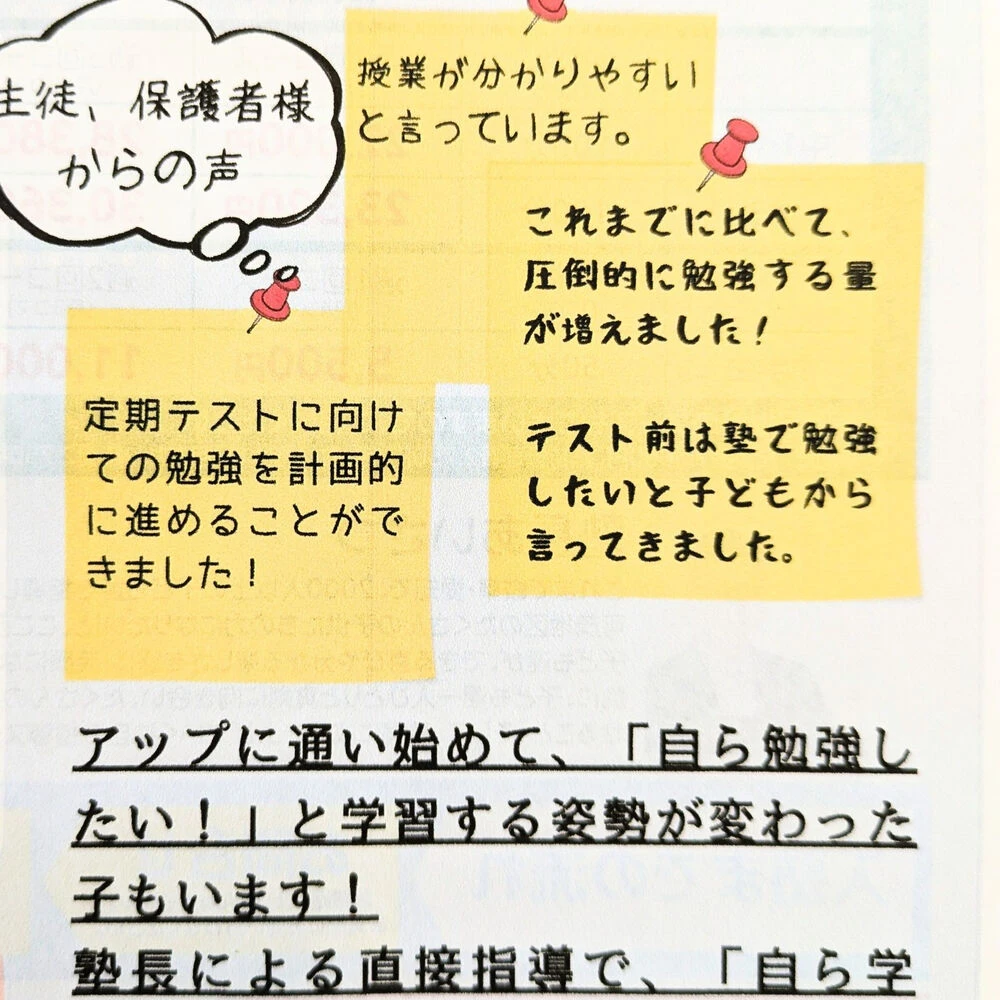 生徒、保護者様
からの声
授業が分かりやすい
と言っています。
これまでに比べて、
圧倒的に勉強する量
が増えました！
テスト前は塾で勉強
したいと子どもから
言ってきました。
定期テストに向け
ての勉強を計画的
に進めることがで
きました！
アップに通い始めて、「自ら勉強し
たい！」と学習する姿勢が変わった
子もいます！
塾長による直接指導で、「自ら学